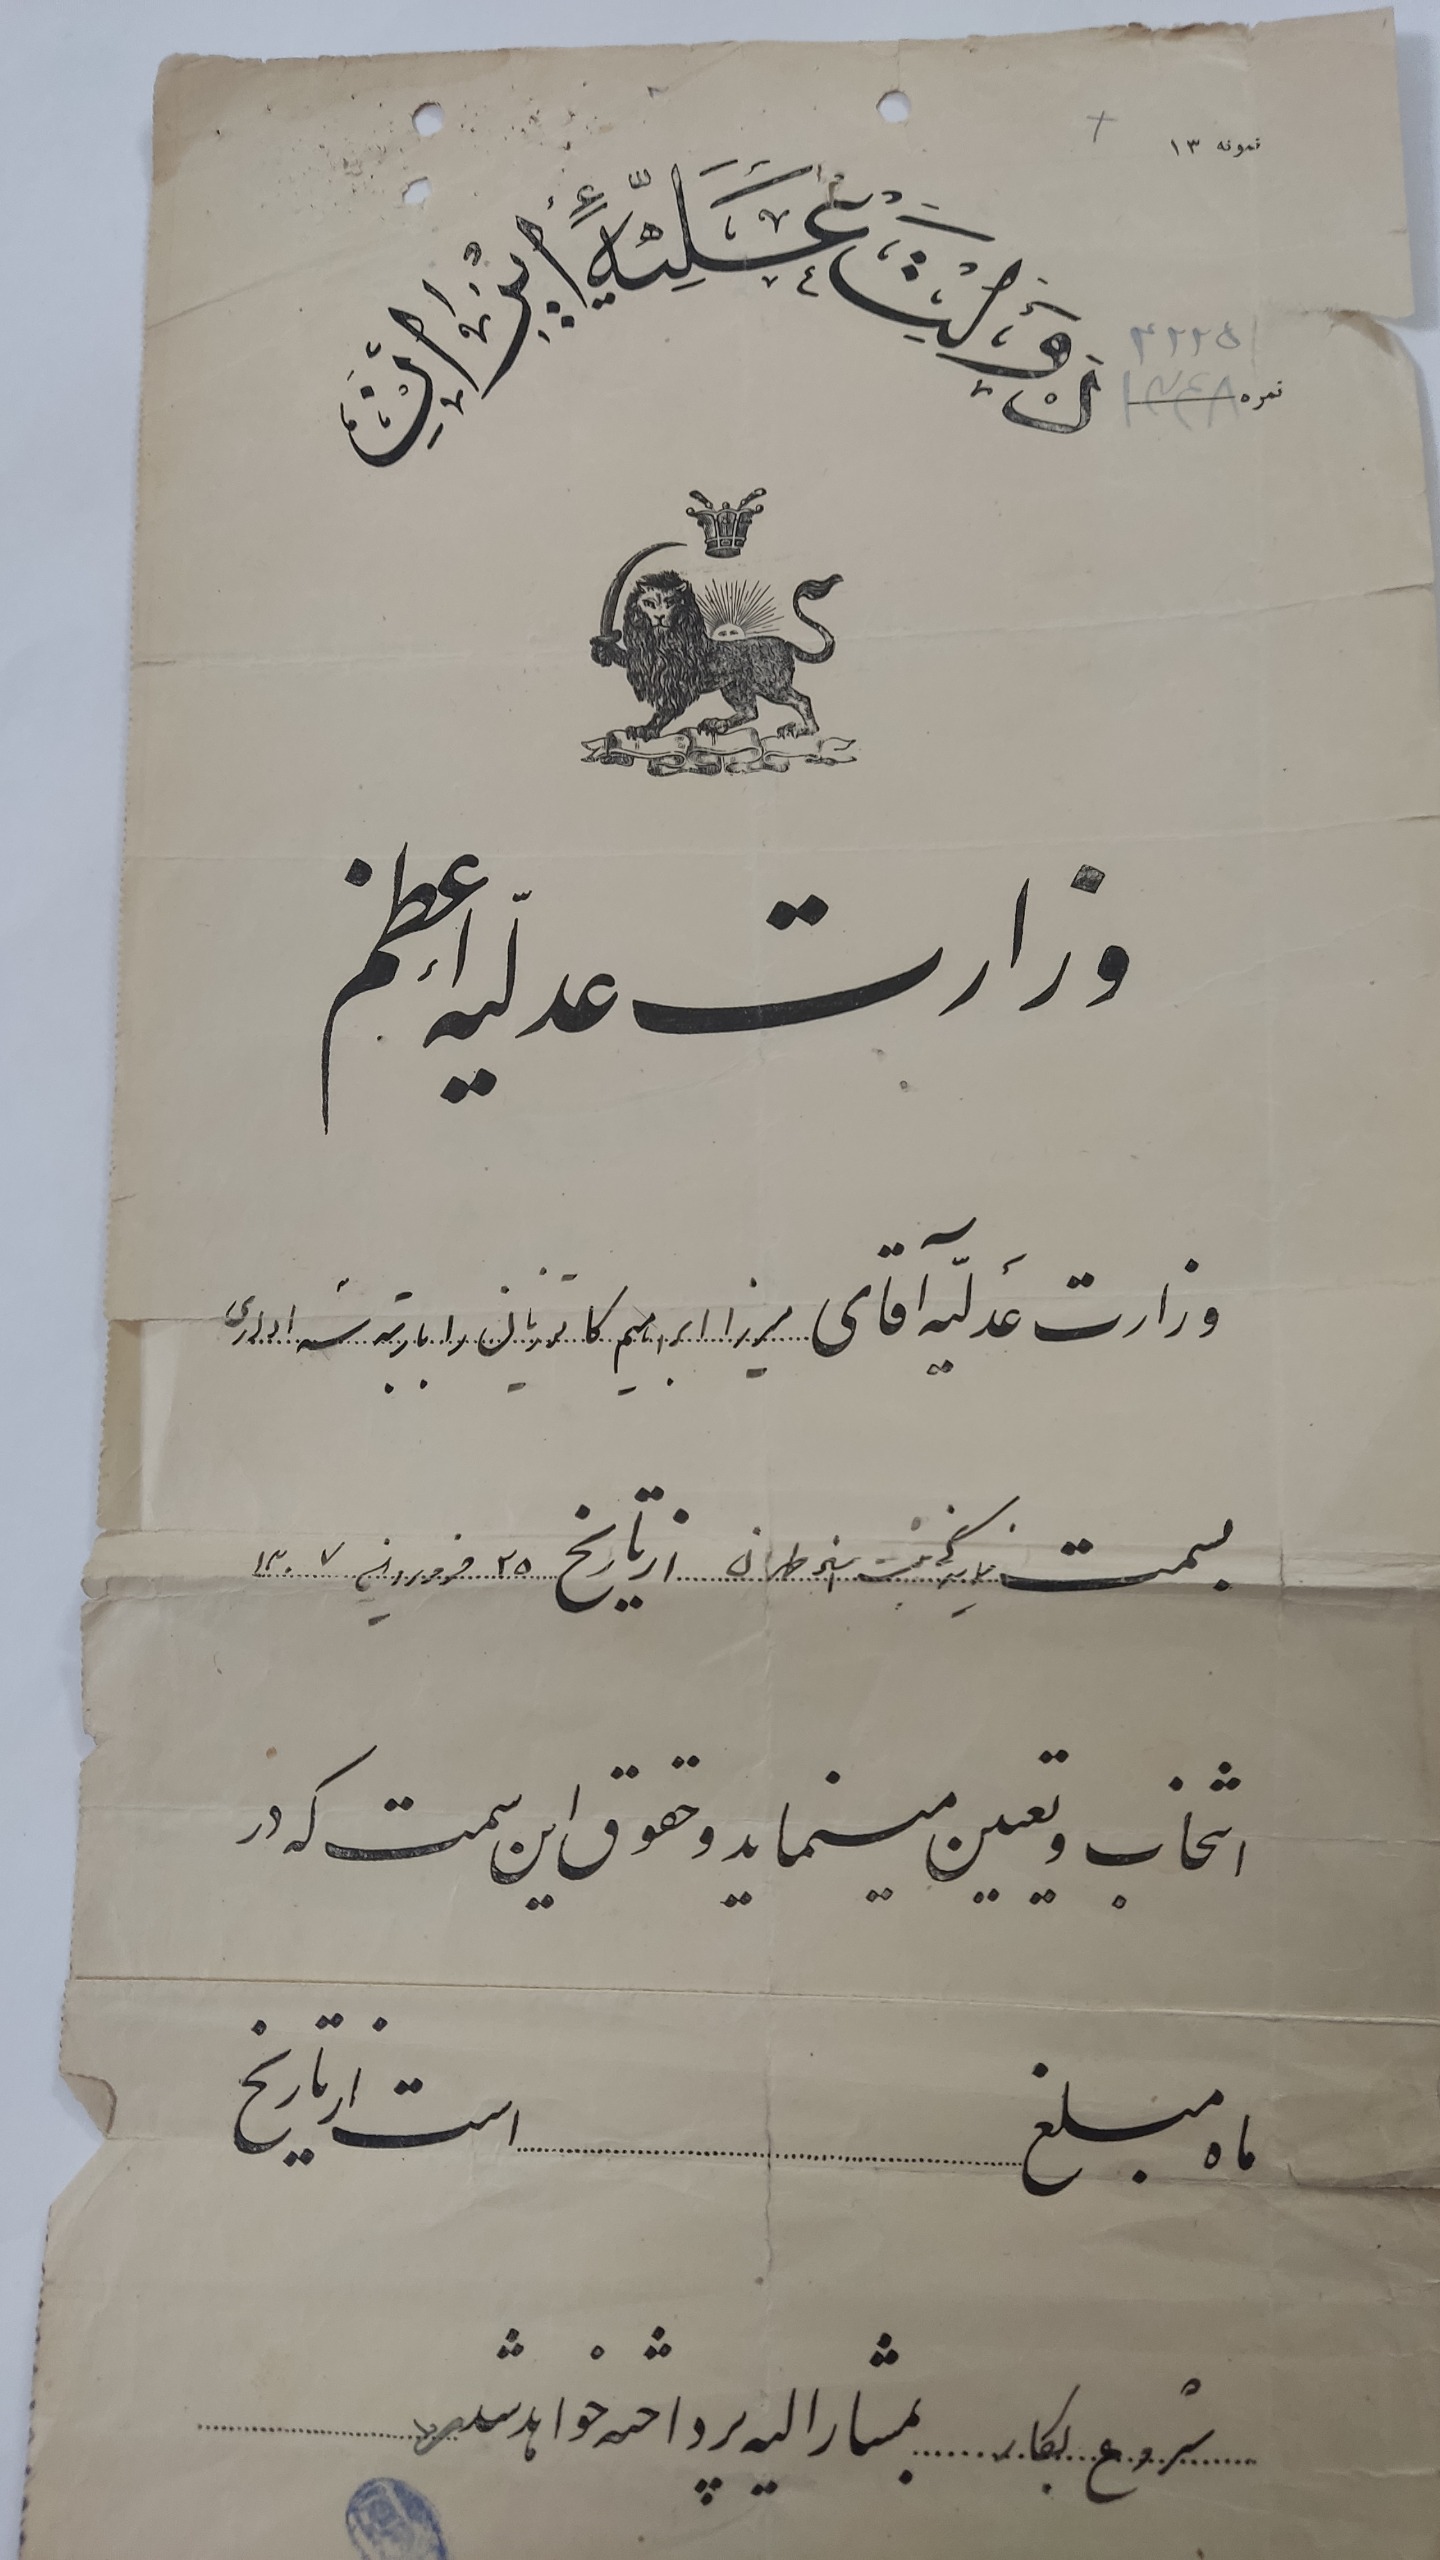 نمونه ۱۳
دولت علیه ایران
نمره
وزارت عدلیه اعظم
وزارت عدلیه آقای میرزا ابراهیم خان را با رتبه سه اداری
بسمت طهران از تاریخ ۲۵ فروردین ۱۳۰۷
انتخاب و تعیین مینماید و حقوق این سمت که در
ماه مبلغ است از تاریخ
شروع بکار بمشارالیه پرداخته خواهد شد